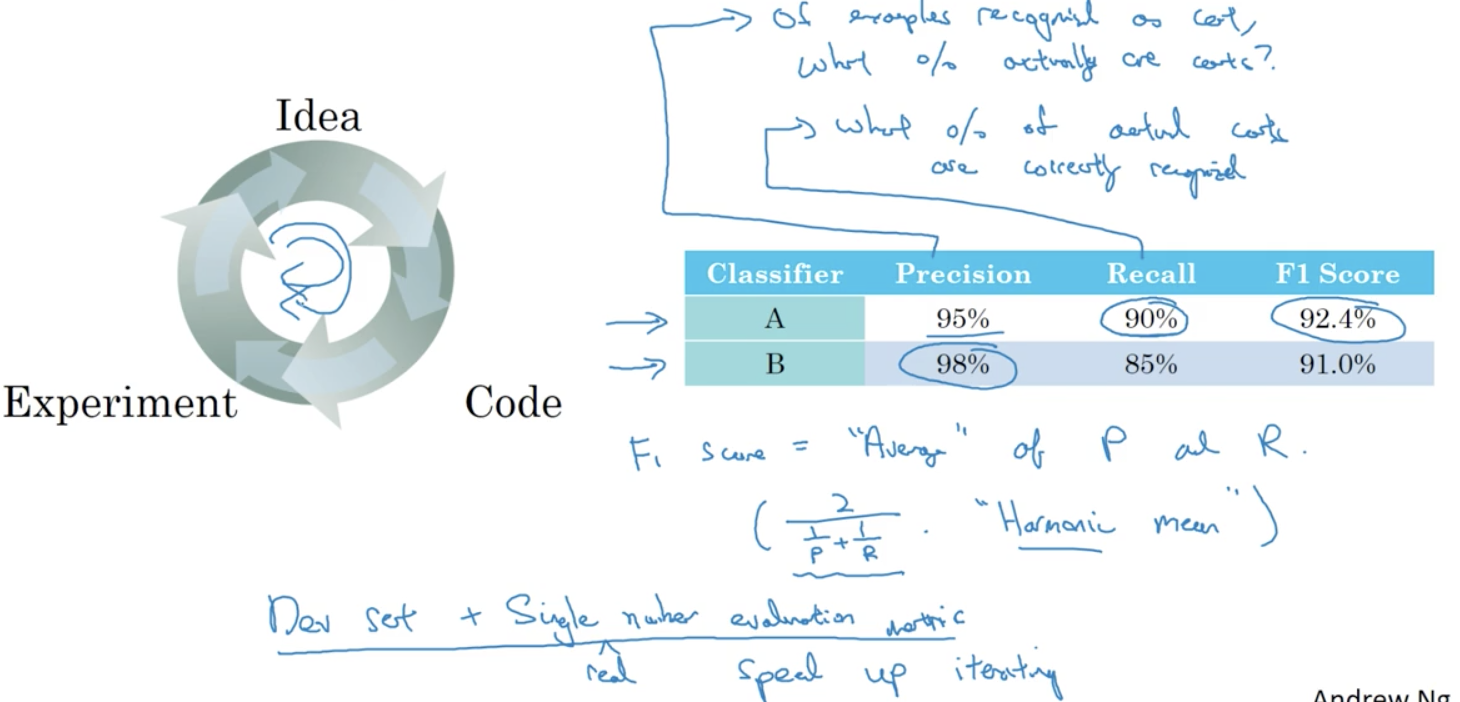 Of examples recognized as cat,
what % actually are cats?
what % of actual cats
are correctly recognized
Idea
Experiment
Code
Classifier Precision Recall F1 Score
A 95% 90% 92.4%
B 98% 85% 91.0%
F1 score = "Average" of P and R.
( 2 / (1/P + 1/R) . "Harmonic mean" )
Dev set + Single number evaluation metric
real speed up iterating
Andrew Ng